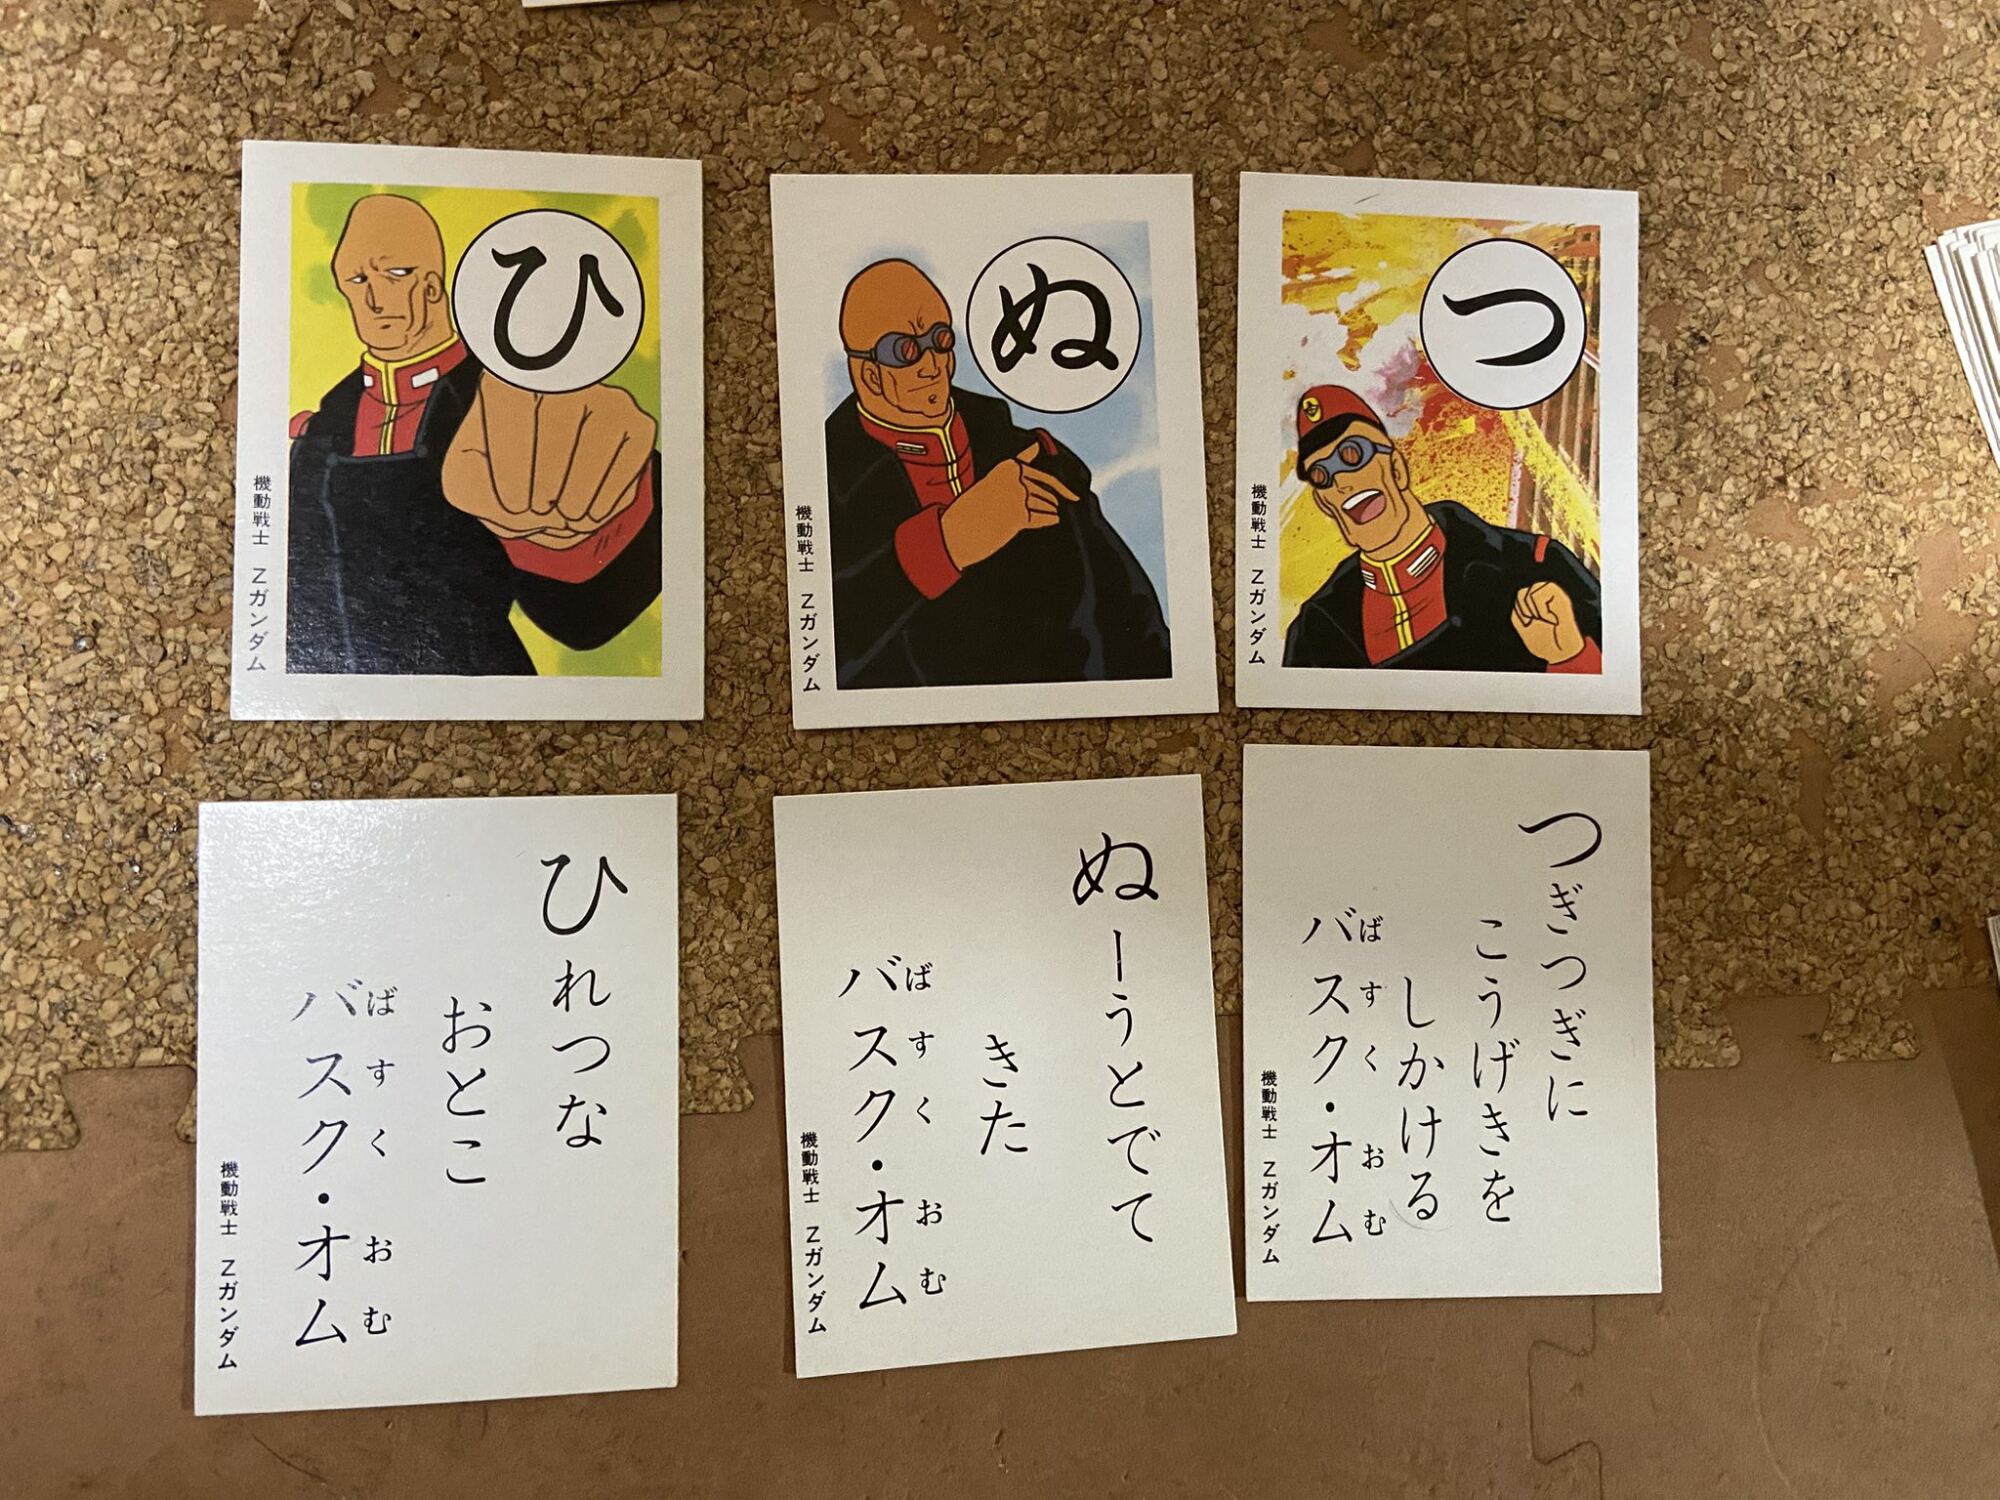 ひ
機動戦士 Zガンダム
ぬ
機動戦士 Zガンダム
つ
機動戦士 Zガンダム
ひれつな
おとこ
バスク・オム
ばすく おむ
機動戦士 Zガンダム
ぬーうとでて
きた
バスク・オム
ばすく おむ
機動戦士 Zガンダム
つぎつぎに
こうげきを
しかける
バスク・オム
ばすく おむ
機動戦士 Zガンダム